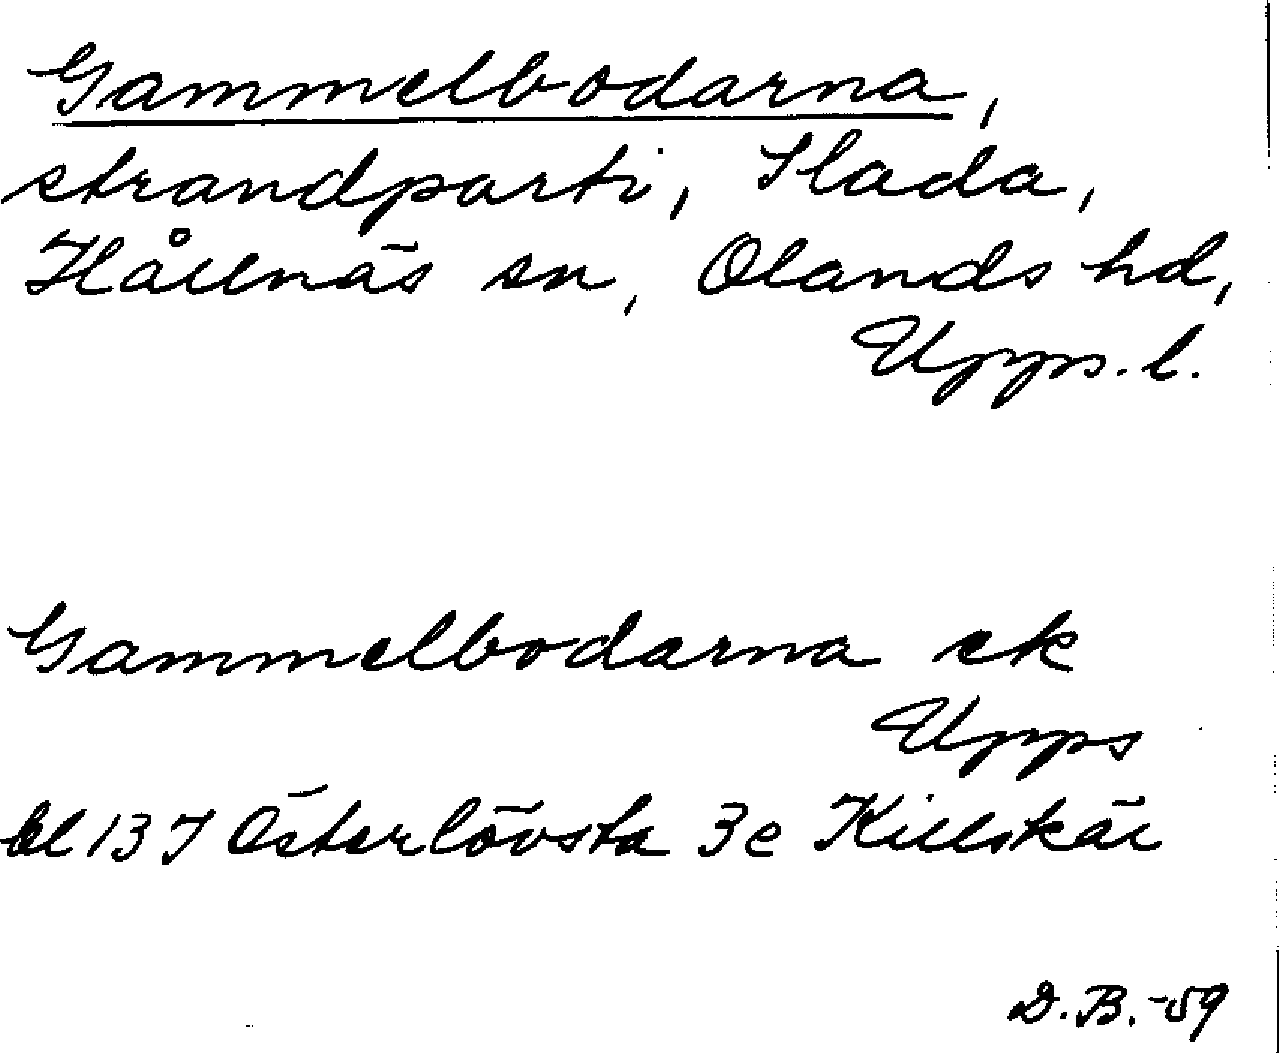 Gammelbodarna,
strandparti, Slada,
Hållnäs sn, Olands hd,
Upps. l.
Gammelbodarna ek
Upps
bl 13 I Österlövsta 3e Killskär
D. B. -59